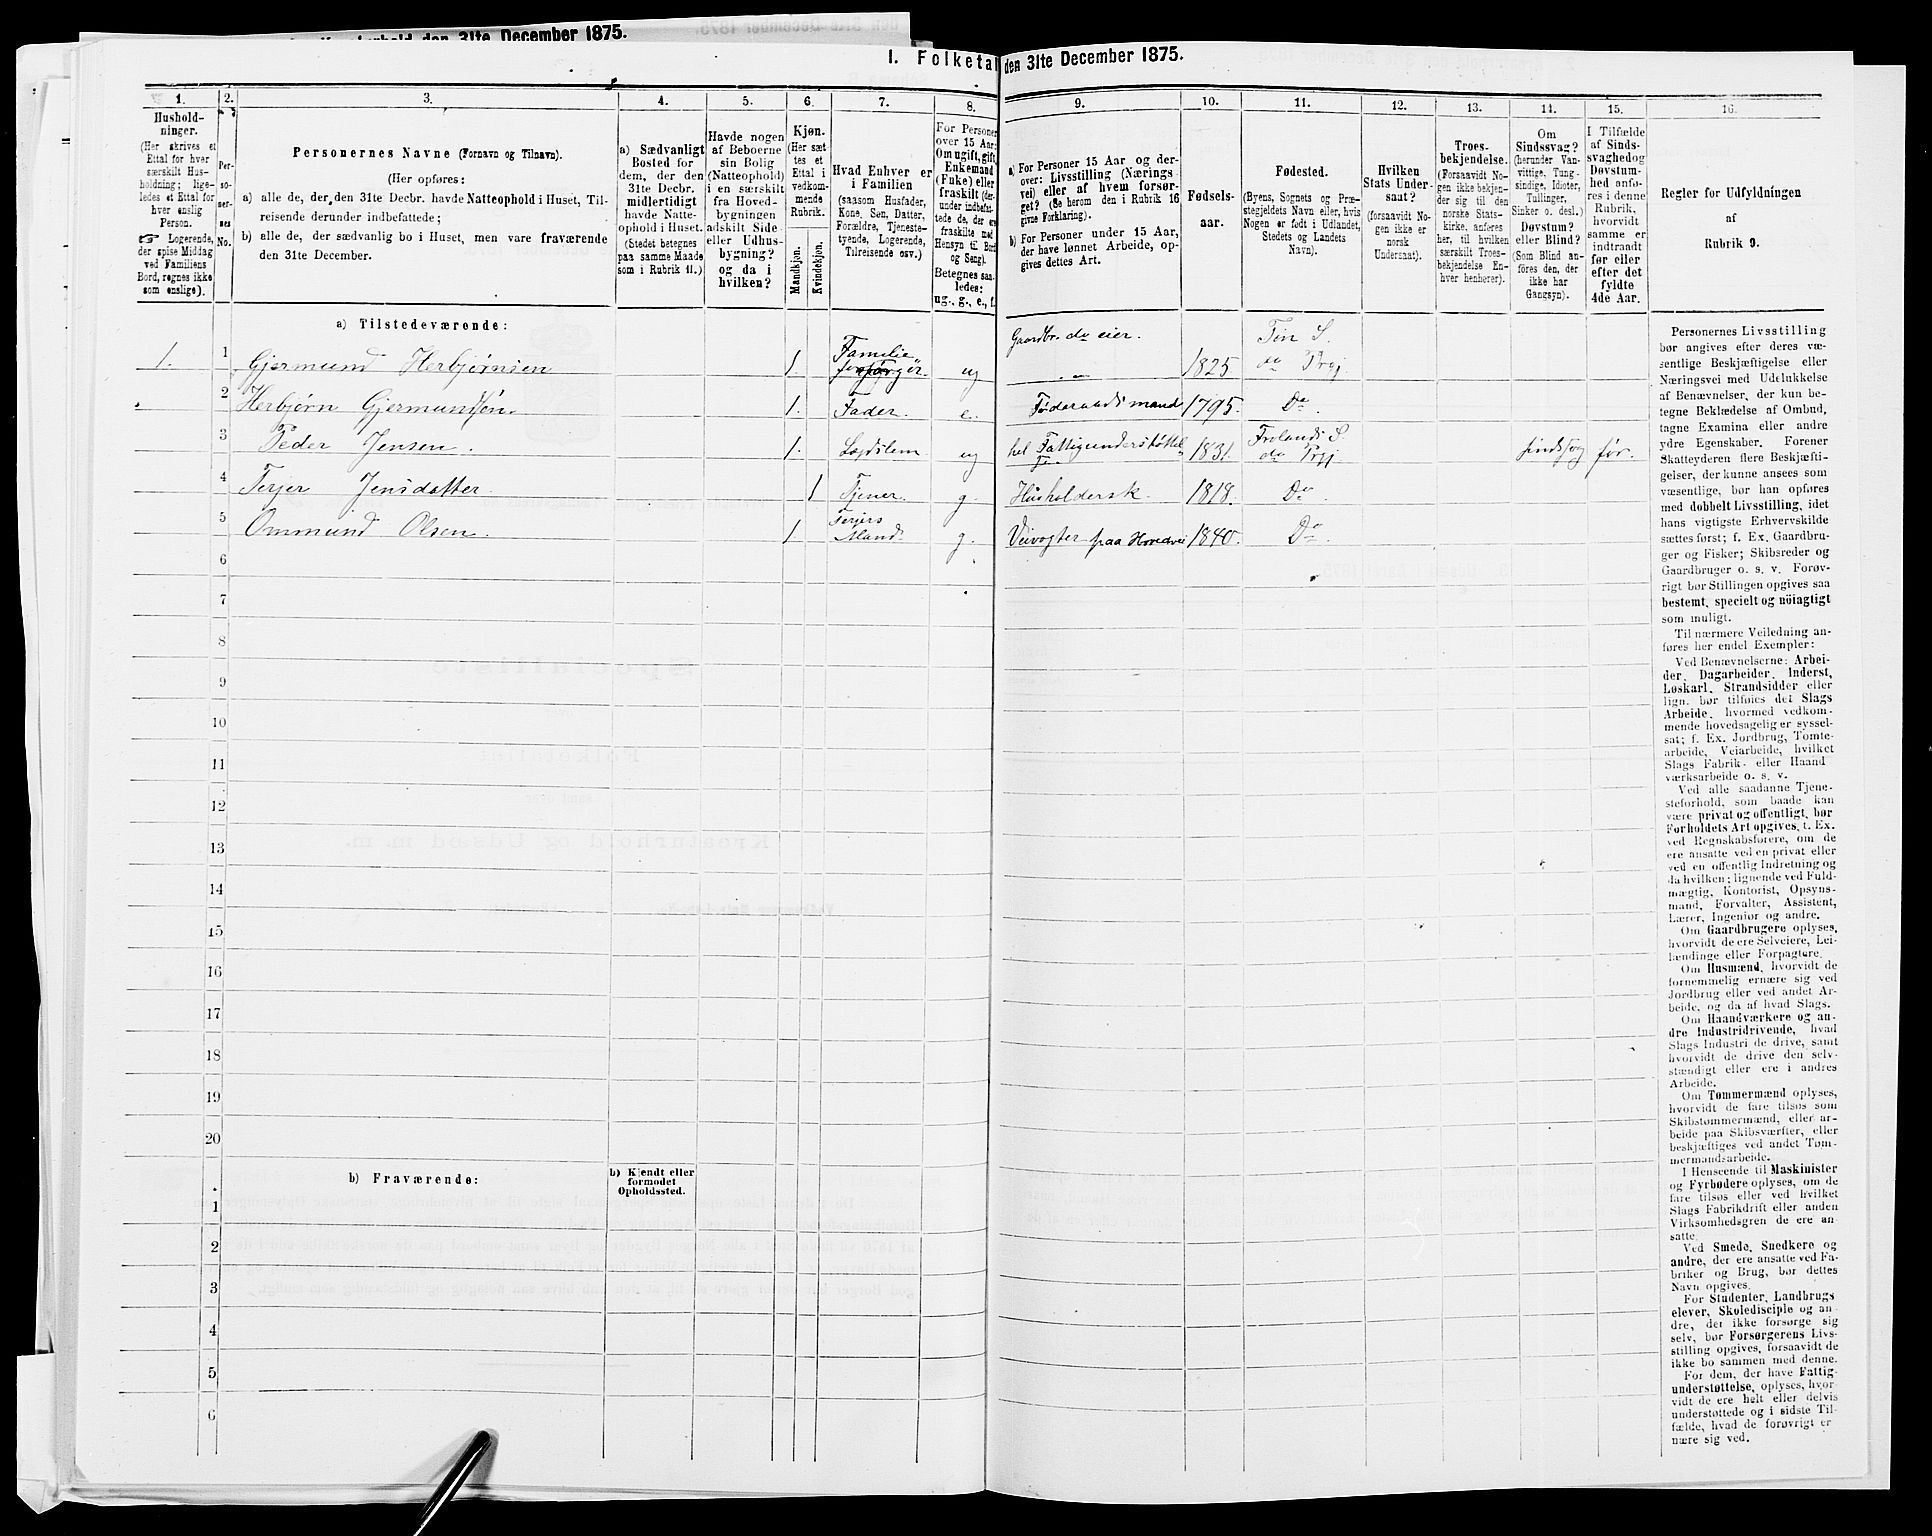 den 31te December 1875.
I. Folketal den 31te December 1875.
1.
Hushold-
ninger.
(Her skrives et
Ettal for hver
særskilt Hus-
holdning; lige-
ledes et Ettal for
hver enslig
Person.
☞ Logerende,
der spise Middag
ved Familiens
Bord, regnes ikke
som enslige).
2.
Per-
so-
ner-
nes
No.
3.
Personernes Navne (Fornavn og Tilnavn).
(Her opføres:
a) alle de, der den 31te Decbr. havde Natteophold i Huset, Til-
reisende derunder indbefattede;
b) alle de, der sædvanlig bo i Huset, men vare fraværende
den 31te December.
4.
a) Sædvanligt
Bosted for
dem, der den
31te Decbr.
midlertidigt
havde Natte-
ophold i Huset.
(Stedet betegnes
paa samme Maade
som i Rubrik 11.)
5.
Havde nogen
af Beboerne
sin Bolig
(Natteophold)
i en særskilt
fra Hoved-
bygningen
adskilt Side-
eller Udhus-
bygning?
og da i
hvilken?
6.
Kjøn.
(Her sæt-
tes et
Ettal i
vedkom-
mende
Rubrik.
Mandkjøn.
Kvindekjøn.
7.
Hvad Enhver er
i Familien
(saasom Husfader,
Kone, Søn, Datter,
Forældre, Tjeneste-
tyende, Logerende,
Tilreisende osv.).
8.
For Personer
over 15 Aar:
Om ugift, gift,
Enkemand
(Enke) eller
fraskilt (der-
under indbefat-
tede de, der ere
fraskilte med
Hensyn til Bord
og Seng).
Betegnes saa-
ledes:
ug., g., e., f.
9.
a) For Personer 15 Aar og der-
over: Livsstilling (Nærings
vei) eller af hvem forsør-
get? (Se herom den i Rubrik 16
givne Forklaring).
b) For Personer under 15 Aar,
der have lønnet Arbeide, op-
gives dettes Art.
10.
Fødsels-
aar.
11.
Fødested.
(Byens, Sognets og Præ-
stegjeldets Navn eller, hvis
Nogen er født i Udlandet,
Stedets og Landets
Navn).
12.
Hvilken
Stats Under-
saat?
(forsaavidt No-
gen ikke er
norsk
Undersaat).
13.
Troes-
bekjendelse.
(Forsaavidt No-
gen ikke bekjen-
der sig til den
norske Stats-
kirke, anføres
her, til hvilken
særskilt Troes-
bekjendelse En-
hver henhører).
14.
Om
Sindssvag?
(herunder Van-
vittige, Tung-
sindige, Idioter,
Tullinger,
Sinker o. desl.)
Døvstum?
eller Blind?
(Som Blind an-
føres den, der
ikke har
Gangsyn).
15.
I Tilfælde
af Sinds-
svaghed og
Døvstum-
hed anfø-
res i denne
Rubrik,
hvorvidt
samme er
indtraadt
før eller
efter det
fyldte
4de Aar.
16.
Regler for Udfyldningen
af
Rubrik 9.
a) Tilstedeværende:
1. 1 Gjermund Herbjørnsen 1. Familieforsørger. ug Gaardbr. da eier. 1825 Tin S. da Prgj.
2 Herbjørn Gjermundsøn. 1. Fader. e. Føderaads mand 1795. Do.
3 Peder Jensen. 1. Lægdslem ug hel Fattigunderstøttel 1831. Frolands S. da Prgj. sindssvag før.
4 Terjer Jensdatter. 1 Tjener. g. Husholdersk. 1818. Do.
5 Ommund Olsen. 1 Terjers Mand g. Veivogter paa Hovedvei 1840. Do
6
7
8
9
10
11
12
13
14
15
16
17
18
19
20
b) Fraværende:
b) Kjendt eller
formodet
Opholdssted.
1
2
3
4
5
6
Personernes Livsstilling
bør angives efter deres væ-
sentlige Beskjæftigelse eller
Næringsvei med Udelukkelse
af Benævnelser, der kun be-
tegne Beklædelse af Ombud,
tagne Examina eller andre
ydre Egenskaber. Forener
Skatteyderen flere Beskjæfti-
gelser, der kunne ansees som
væsentlige, bør han opføres
med dobbelt Livsstilling, idet
hans vigtigste Erhvervskilde
sættes først; f. Ex. Gaardbru-
ger og Fisker; Skibsreder og
Gaardbruger o. s. v. Forøv-
rigt bør Stillingen opgives saa
bestemt, specielt og nöiagtigt
som muligt.
Til nærmere Veiledning an-
føres her endel Exempler:
Ved Benævnelserne: Arbei-
der, Dagarbeider, Inderst,
Løskarl, Strandsidder eller
lign. bør tilføies det Slags
Arbeide, hvormed vedkom-
mende hovedsagelig er syssel-
sat; f. Ex. Jordbrug, Tomte-
arbeide, Veiarbeide, hvilket
Slags Fabrik- eller Haand
værksarbeide o. s. v.
Ved alle saadanne Tjene-
steforhold, som baade kan
være privat og offentligt, bør
Forholdets Art opgives, t. Ex.
ved Regnskabsførere, om de
ere ansatte ved en privat eller
ved en offentlig Indretning og
da hvilken; lignende ved Fuld-
mægtig, Kontorist, Opsyns-
mand, Forvalter, Assistent,
Lærer, Ingeniør og andre.
Om Gaardbrugere oplyses,
hvorvidt de ere Selveiere, Lei-
lændinge eller Forpagtere.
Om Husmænd, hvorvidt de
fornemmelig ernære sig ved
Jordbrug eller ved andet Ar-
beide, og da af hvad Slags.
Om Haandværkere og an-
dre Industridrivende, hvad
Slags Industri de drive, samt
hvorvidt de drive den selv-
stændigt eller ere i andres
Arbeide.
Om Tømmermænd oplyses,
hvorvidt de fare tilsøs som
Skibstømmermænd, eller ar-
beide paa Skibsværfter, eller
beskjæftiges ved andet Tøm-
mermandsarbeide.
I Henseende til Maskinister
og Fyrbødere oplyses, om de
fare tilsøs eller ved hvilket
Slags Fabrikdrift eller anden
Virksomhedsgren de ere an-
satte.
Ved Smede, Snedkere og
andre, der ere ansatte ved Fa-
briker og Brug, bør dettes
Navn opgives.
For Studenter, Landbrugs
elever, Skoledisciple og an-
dre, der ikke forsørge sig
selv, bør Forsørgerens Livs-
stilling opgives, forsaavidt de
ikke bo sammen med denne.
For dem, der have Fattig-
understøttelse, oplyses, hvor-
vidt de ere helt eller delvis
understøttede og i sidste Til-
fælde, hvad de forøvrigt er
nære sig ved.